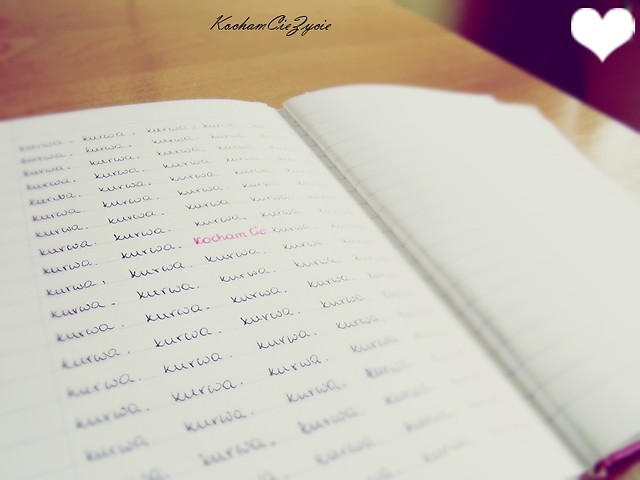 KochamCieZycie
kurwa. kurwa. kurwa. kurwa.
kurwa. kurwa. kurwa. kurwa.
kurwa. kurwa. kurwa. kurwa.
kurwa. kurwa. kurwa. kurwa.
kurwa. kurwa. kurwa. kurwa.
kurwa. kurwa. kurwa. kurwa.
kurwa. kurwa. kurwa. kurwa.
kurwa. kurwa. kurwa. kurwa.
kurwa. kurwa. Kocham Cię kurwa.
kurwa, kurwa. kurwa. kurwa.
kurwa. kurwa. kurwa. kurwa.
kurwa. kurwa. kurwa. kurwa.
kurwa. kurwa. kurwa. kurwa.
kurwa. kurwa. kurwa. kurwa.
kurwa. kurwa. kurwa. kurwa.
kurwa. kurwa. kurwa. kurwa.
kurwa. kurwa. kurwa. kurwa.
kurwa. kurwa.